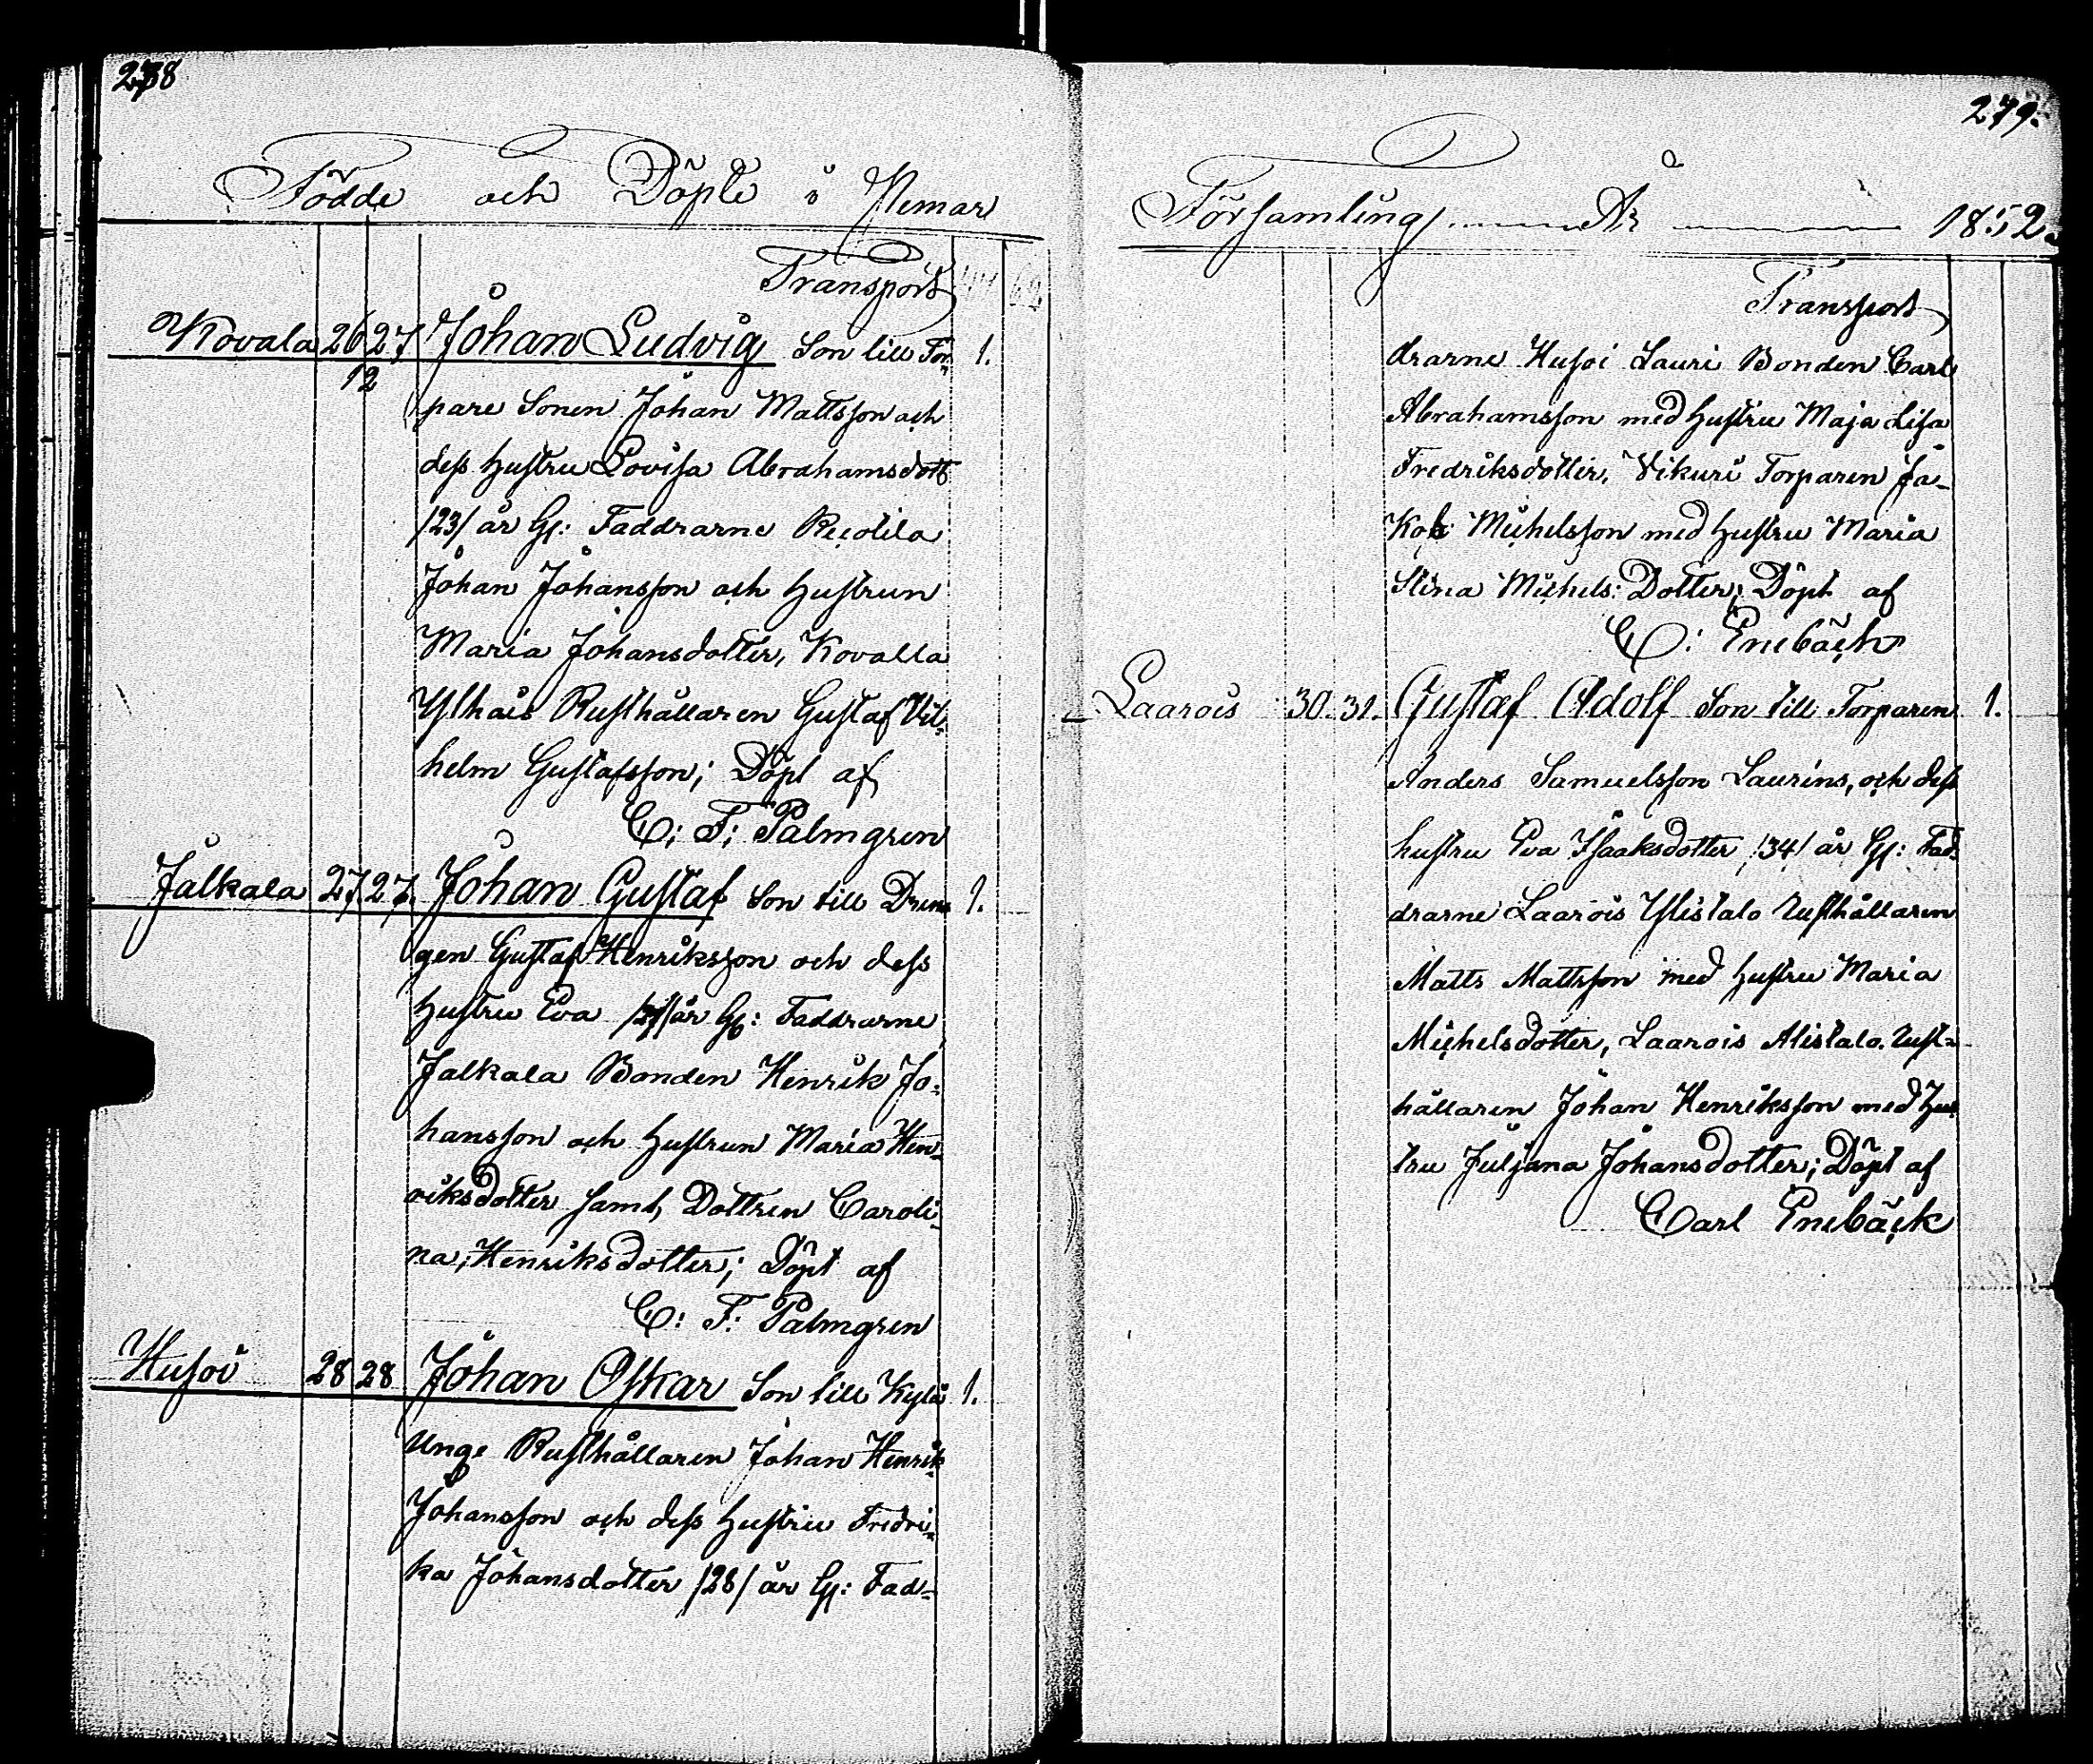 278
Födde och Döpte i Nemar
Transport
Kovala 26 27 Johan Ludvig Son till Tor- 1.
12
pare Sonen Johan Mattsson och
dess hustru Lovisa Abrahamsdott
/23/ år Gl: Faddrarne
Johan Johansson och Hustrun
Maria Johansdotter, Kovalla
Rusthållaren Gustaf Vil-
helm Gustafsson; Döpt af
C: F: Palmgren
Jalkala 27 27. Johan Gustaf Son till Dren- 1.
gen Gustaf Henriksson och dess
Hustru Eva år Gl: Faddrarne
Jalkala Bonden Henrik Jo-
hansson och Hustrun Maria Hen-
riksdotter samt Dottren Caroli-
na Henriksdotter; Döpt af
C: F: Palmgren
Husoi 28 28 Johan Oskar Son till Kylä 1.
Unge Rusthållaren Johan Henrik
Johansson och dess Hustru Fredri-
ka Johansdotter /28/ år Gl: Fad-
279.
Församling År 1852.
Transport
drarne Husoi Lauri Bonden Carl
Abrahamsson med hustru Maja Lisa
Fredriksdotter, Vikuri Torparen Ja-
kob Michelsson med hustru Maria
Stina Michels: Dotter; Döpt af
C: Enebäck
Laarois 30. 31. Gustaf Adolf Son till Torparen 1.
Anders Samuelsson Laurins, och dess
hustru Eva Isaaksdotter /34/ år Gl: Fad-
drarne Laarois Ylistalo Rusthållaren
Matts Mattsson med hustru Maria
Michelsdotter, Laarois Alistalo Rust-
hållaren Johan Henriksson med hus
tru Juljana Johansdotter; Döpt af
Carl Enebäck